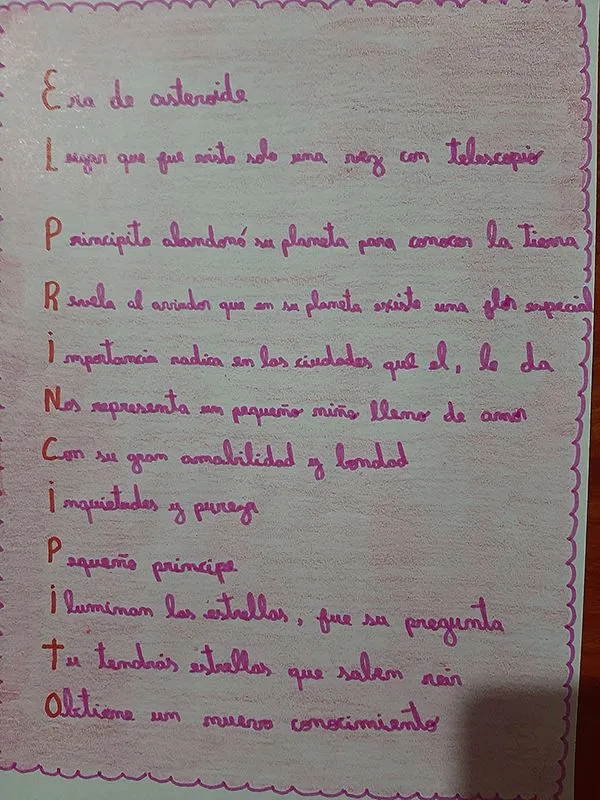 Era de asteroide
Lugar que fue visto solo una vez con telescopio
Principito abandonó su planeta para conocer la tierra
Revela al aviador que en su planeta existe una flor especial
importancia radica en los ciudades que el, le da
Nos representa un pequeño niño lleno de amor
Con su gran amabilidad y bondad
inquietudes y pureza
Pequeño principe
iluminan las estrellas, fue su pregunta
Tu tendrás estrellas que saben reir
Obtiene un nuevo conocimiento